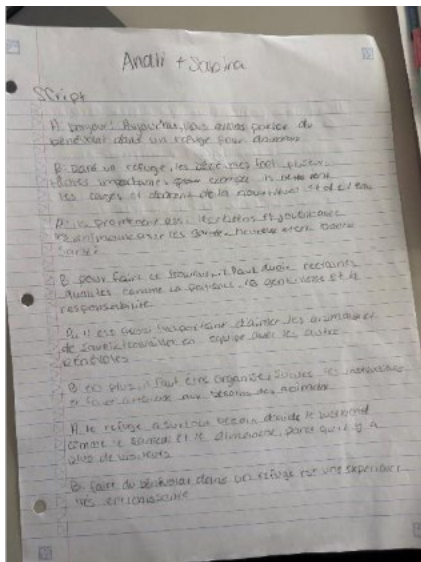 Anali + Sabina
Script
A: bonjour! Aujourd'hui, nous allons parler du
bénévolat dans un refuge pour
B: Dans un refuge, les bénévoles font
tâches importantes par exemple
les cages et donnent de la nourriture et de l'eau
A: ils promènent les chiens et
les
B: pour faire ce travail il faut avoir certaines
qualités comme la patience, la gentillesse et la
responsabilité
A: il est aussi important d'aimer les animaux et
de savoir travailler en équipe avec les autre
bénévoles
B: en plus, il faut être organisé, suivre les instructions
et faire attention aux besoins des animaux
A: le refuge a surtout besoin d'aide le weekend
comme le samedi et le dimanche, parce qu'il y a
plus de visiteurs
B: faire du bénévolat dans un refuge est une expérience
très enrichissante